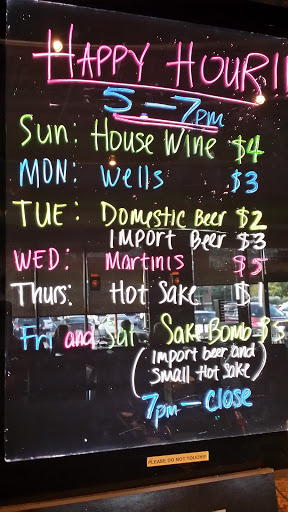 HAPPY HOUR!!
5 - 7pm
Sun: House Wine $4
MON: Wells $3
TUE: Domestic Beer $2
Import Beer $3
WED: Martinis $5
Thurs: Hot Sake $
Fri and Sat Sake Bomb $5
(Import beer and
Small Hot Sake)
7pm - Close
PLEASE DO NOT TOUCH!!!